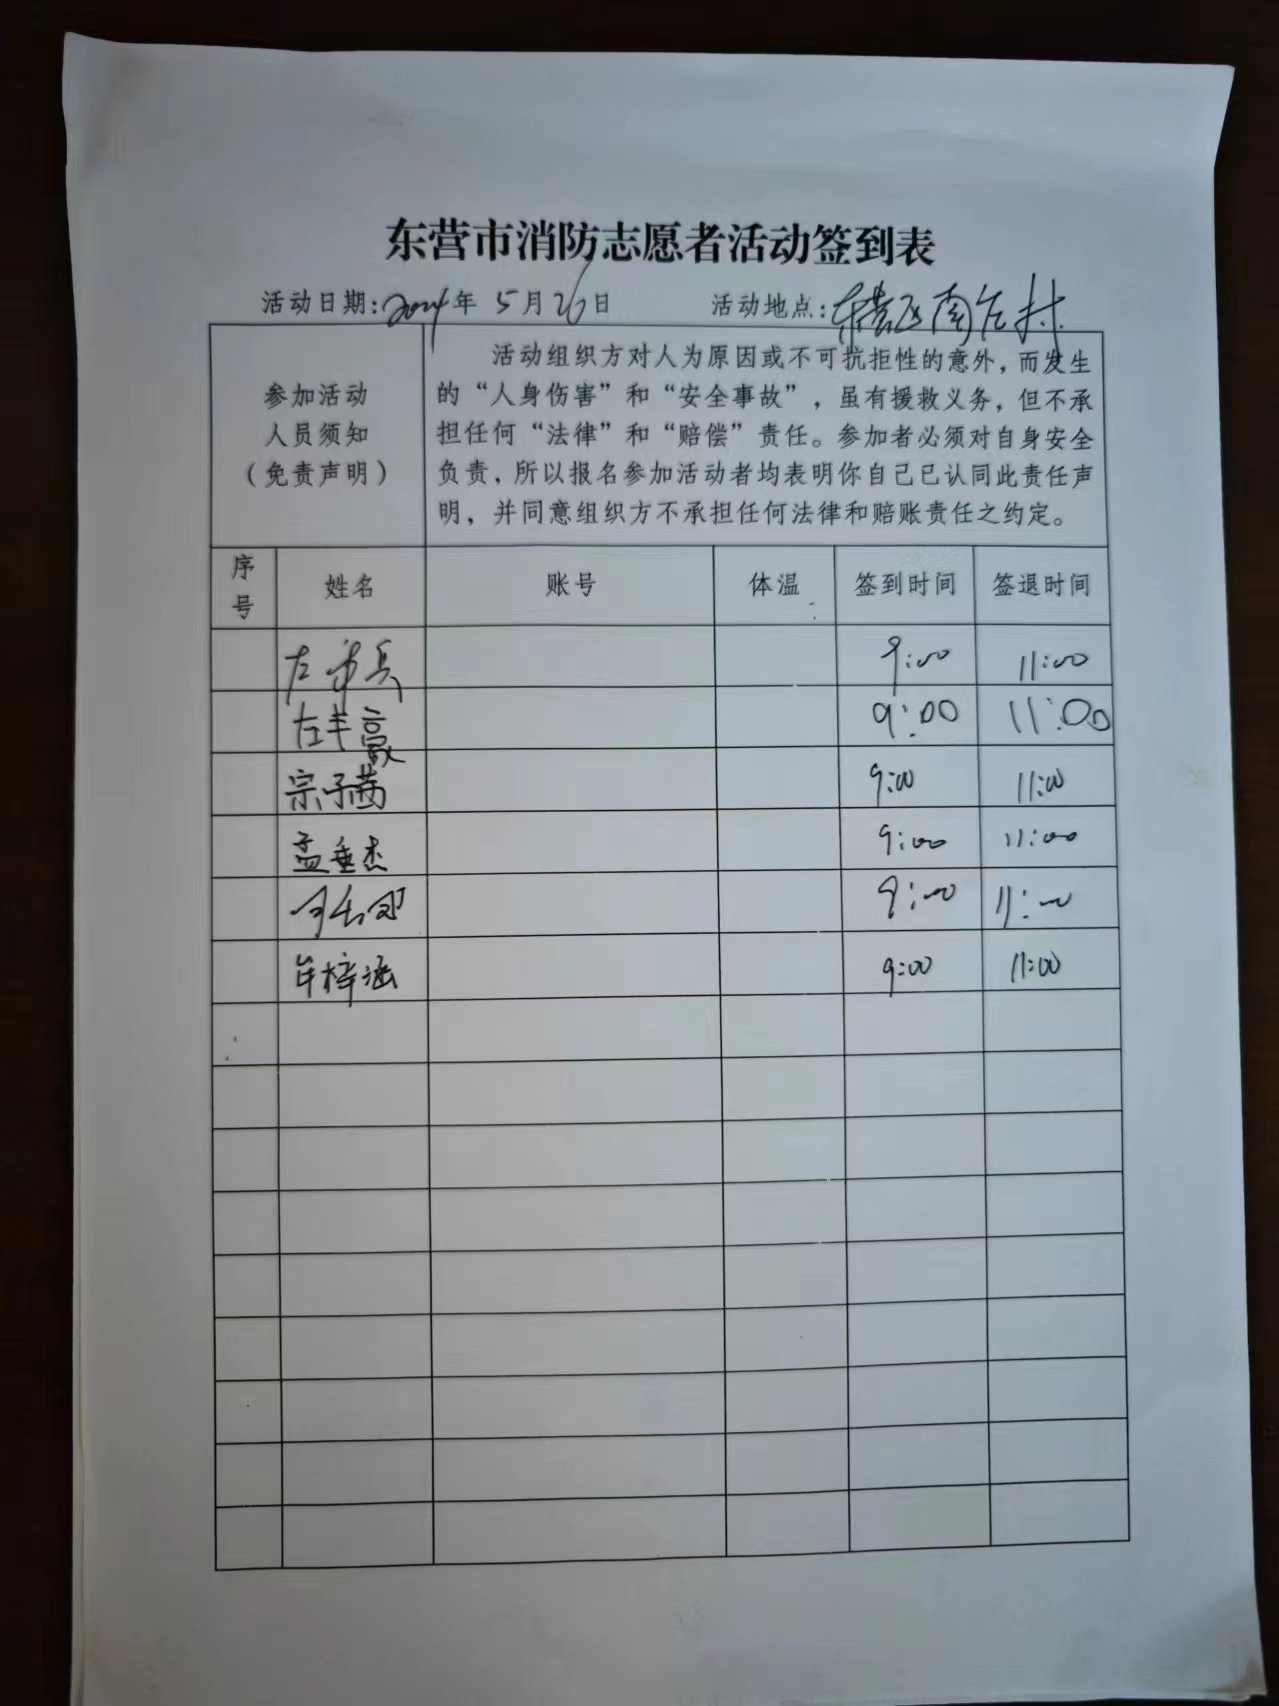 东营市消防志愿者活动签到表
活动日期：2024年 5月26日 活动地点：东营区南左村
参加活动
人员须知
（免责声明）
活动组织方对人为原因或不可抗拒性的意外，而发生
的“人身伤害”和“安全事故”，虽有援救义务，但不承
担任何“法律”和“赔偿”责任。参加者必须对自身安全
负责，所以报名参加活动者均表明你自己已认同此责任声
明，并同意组织方不承担任何法律和赔账责任之约定。
序号 姓名 账号 体温 签到时间 签退时间
左 兵 9:00 11:00
左丰豪 9:00 11:00
宗子茜 9:00 11:00
孟垂杰 9:00 11:00
9:00 11:00
牟梓涵 9:00 11:00